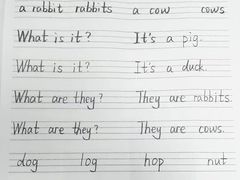 a rabbit rabbits a cow cows
What is it? It's a pig.
What is it? It's a duck.
What are they? They are rabbits.
What are they? They are cows.
dog log hop nut